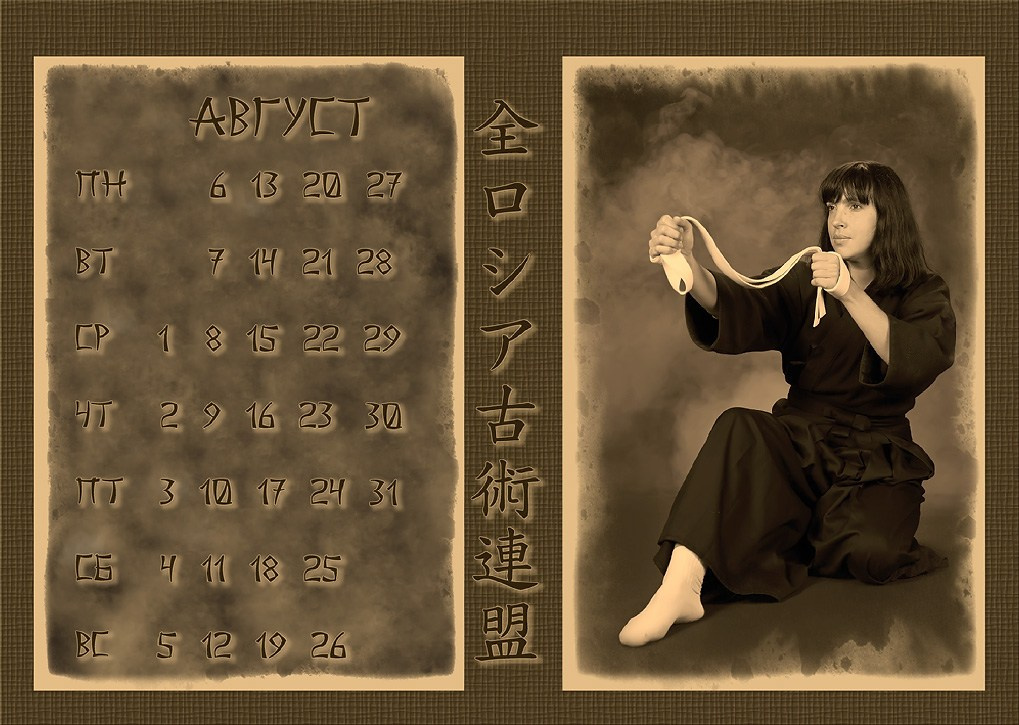 АВГУСТ
ПН 6 13 20 27
ВТ 7 14 21 28
СР 1 8 15 22 29
ЧТ 2 9 16 23 30
ПТ 3 10 17 24 31
СБ 4 11 18 25
ВС 5 12 19 26
全ロシア古術連盟